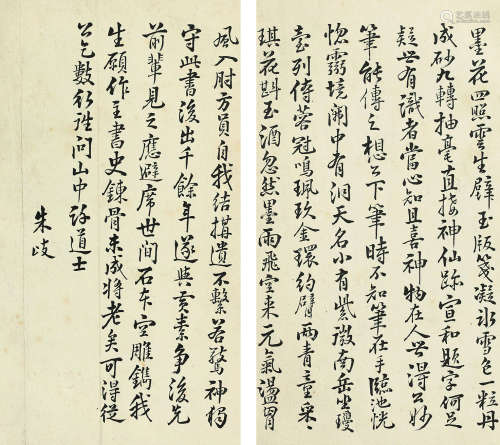 墨花四照雲生壁玉版箋凝冰雪色一粒丹
成砂九轉抽毫直接神仙跡宣和題字何足
疑世有識者當心知且喜神物在人世得公妙
筆能傳之想公下筆時不知筆在手臨池恍
惚靈境開中有洞天名小有紫微南岳坐瓊
臺列侍蓉冠鳴珮玖金環約臂兩青童采
琪花斟玉酒忽然墨雨飛空來元氣盪胷
風入肘方員自我結搆遺不繫若驚神獨
守此書後出千餘年遂與黃素爭後先
前輩見之應避席世間石本空雕鐫我
生願作主書史鍊骨未成將老矣可得從
公乞數行詎問山中許道士
朱歧